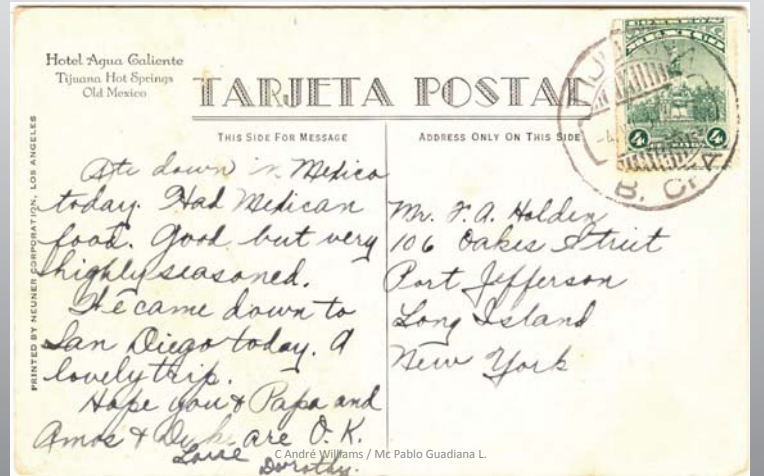 Hotel Agua Caliente
Tijuana Hot Springs
Old Mexico
TARJETA POSTAL
THIS SIDE FOR MESSAGE
ADDRESS ONLY ON THIS SIDE
PRINTED BY NEUNER CORPORATION, LOS ANGELES
Ate down in Mexico
today. Had Mexican
food. Good but very
highly seasoned.
We came down to
San Diego today. A
lovely trip.
Hope you & Papa and
Amos & are O.K.
Love
Dorothy.
Mr. F. A. Holden
106 Oakes Street
Port Jefferson
Long Island
New York
4
4
B. CFA
C André Williams / Mc Pablo Guadiana L.